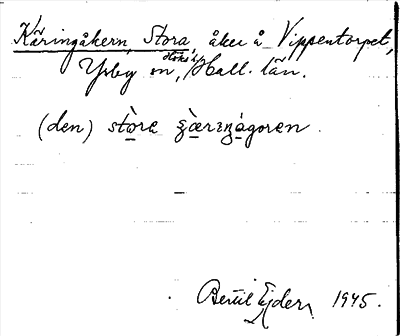 Käringåkern, Stora, åker å Vippentorpet,
Ysby sn, Höks hd, Hall. län.
(den) stòra çæ̀rıŋågoren.
Bertil Ejder 1945.